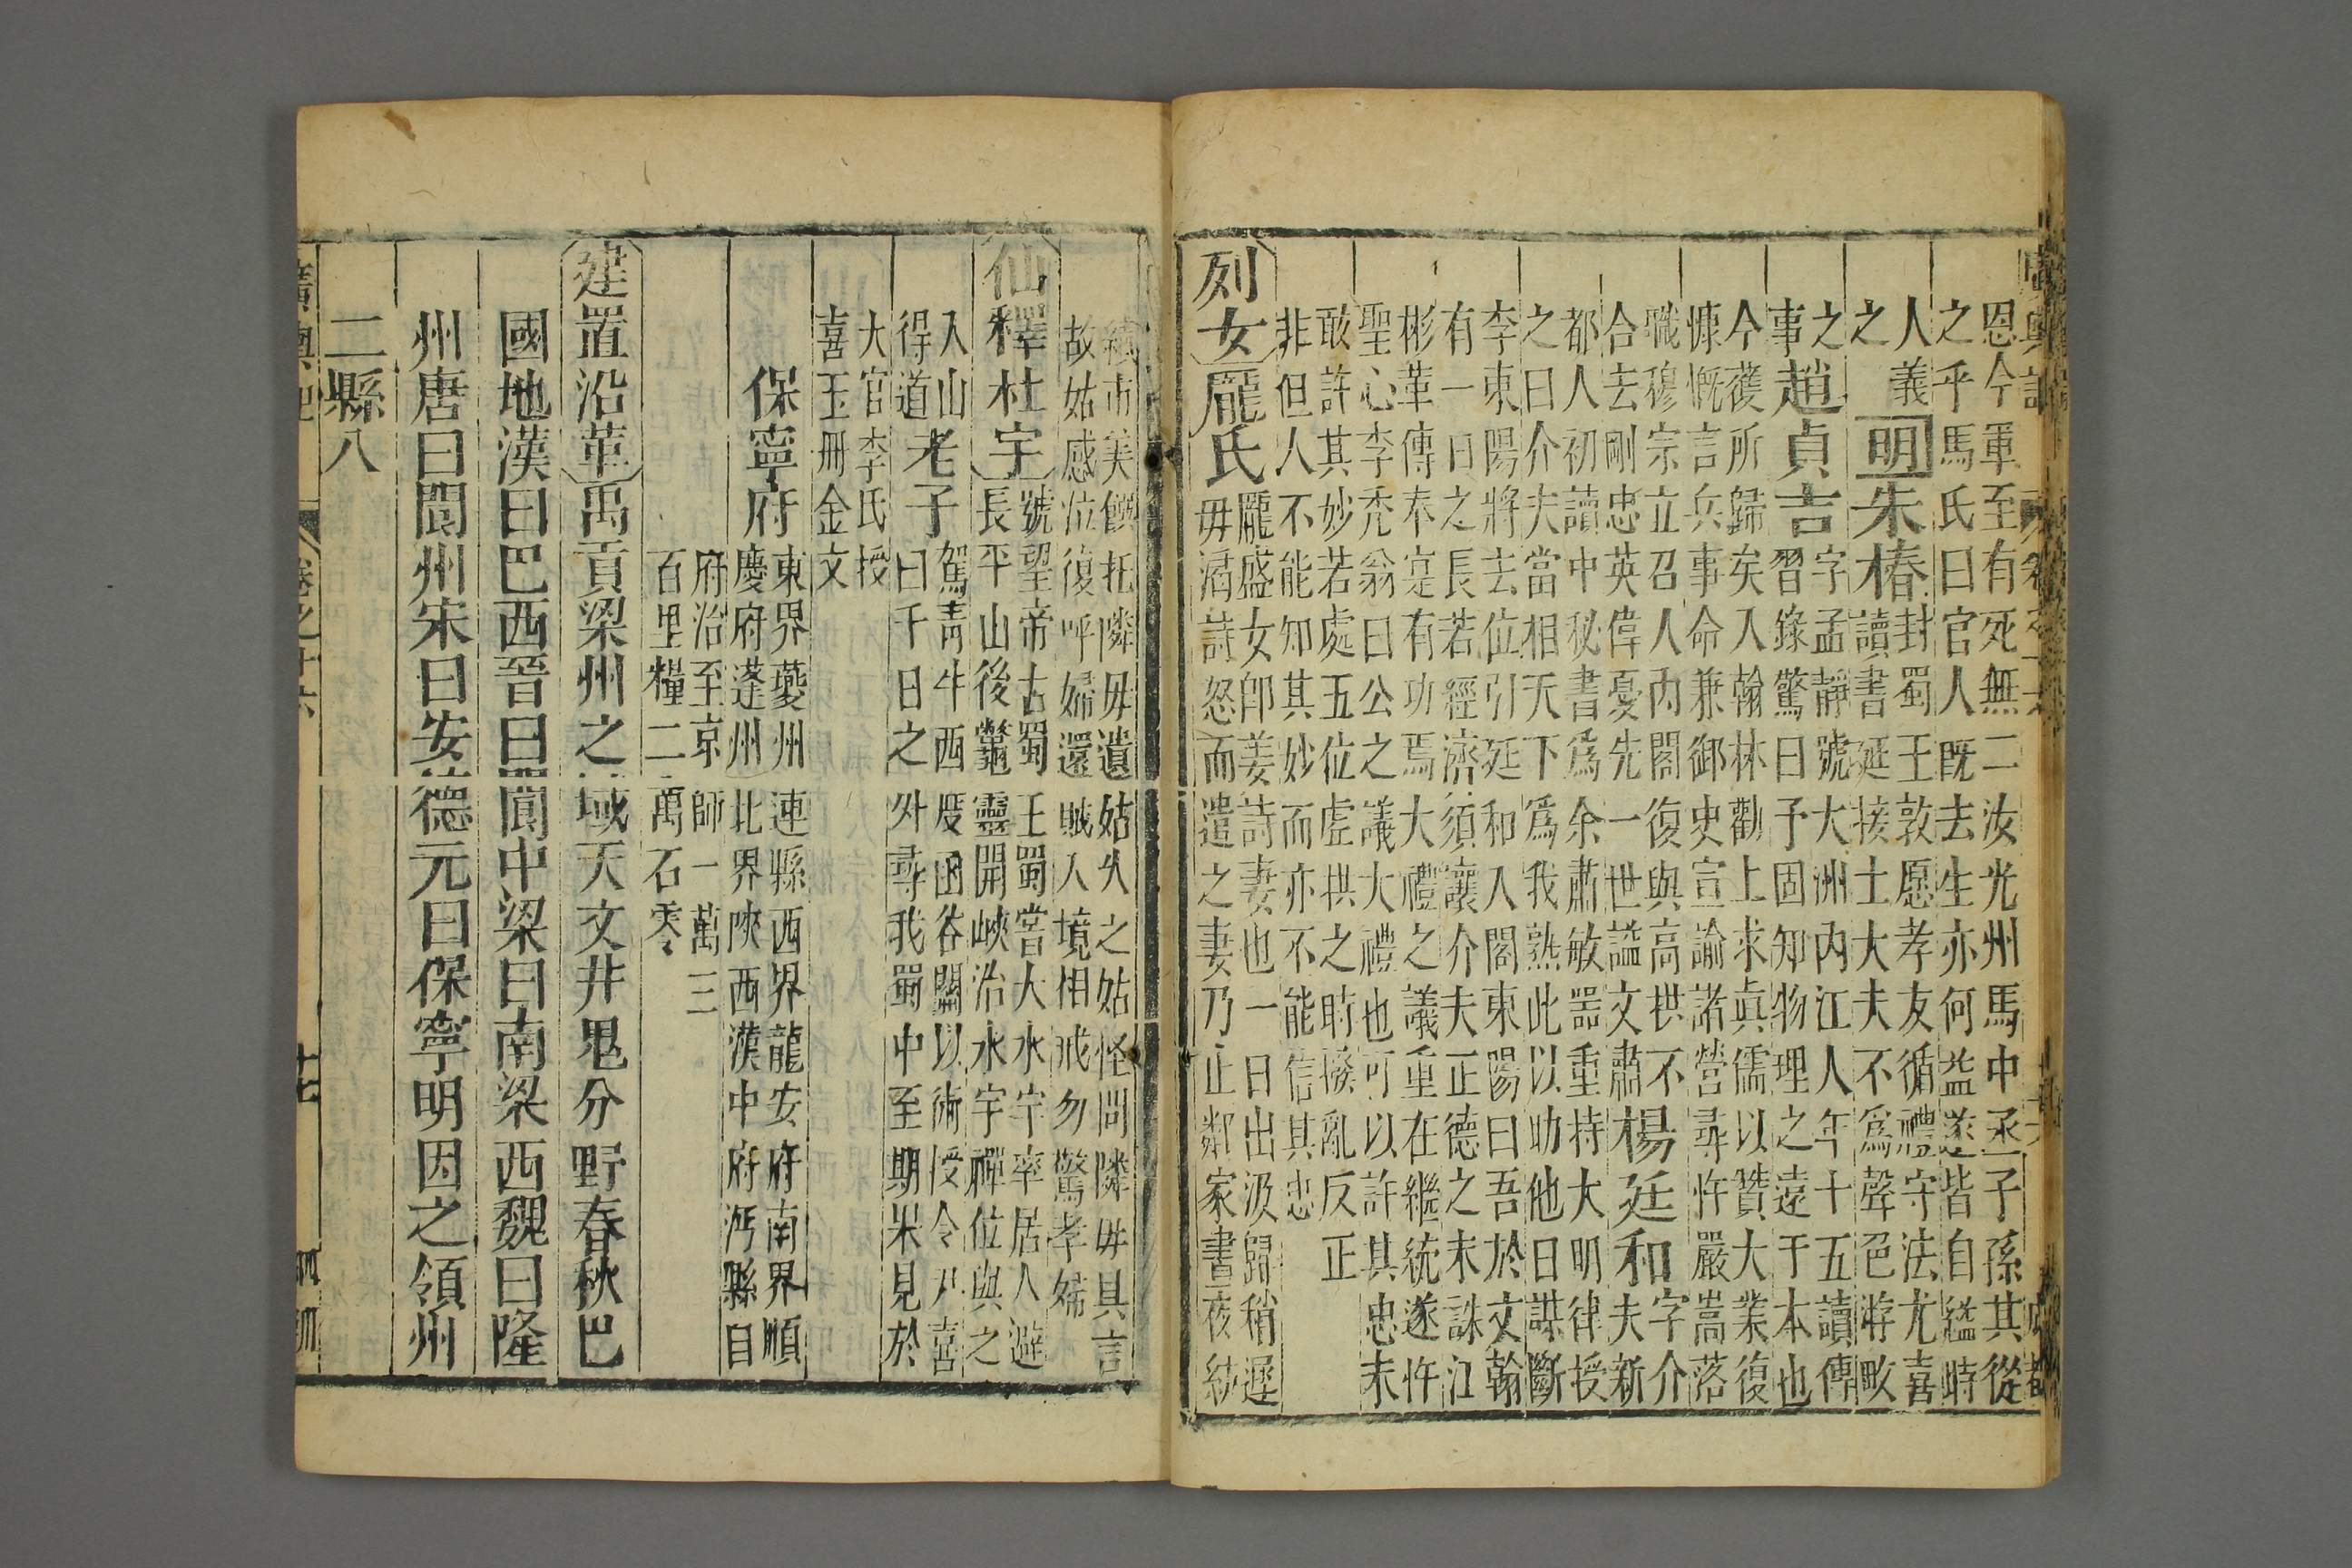 恩今軍至有死無二汝光州馬中丞子孫其從
之乎馬氏曰官人既去生亦何益遂皆自縊時
人義
之
明朱椿
封蜀王敦愿孝友循禮守法尤喜
讀書延接士大夫不爲聲色游畋
之
事
趙貞吉
字孟靜號大洲內江人年十五讀傳
習錄驚曰予固知物理之遠于本也
今獲所歸矣入翰林勸上求真儒以贊大業復
慷慨言兵事命兼御史宣諭諸營尋忤嚴嵩落
職穆宗立召入內閣復與高拱不
合去剛忠英偉憂先一世謚文肅
楊廷和
字介
夫新
都人初讀中秘書爲余肅敏器重持大明律授
之曰介夫當相天下爲我熟此以助他日謀斷
李東陽將去位引廷和入閣東陽曰吾於文翰
有一日之長若經濟須讓介夫正德之末誅江
彬革傳奉寔有功焉大禮之議重在繼統遂忤
聖心李禿翁曰公之議大禮也可以許其忠未
敢許其妙若處五位虛拱之時撥亂反正
非但人不能知其妙而亦不能信其忠
列女龐氏
龐盛女卽姜詩妻也一日出汲歸稍遲
毋滔詩怒而遣之妻乃止鄰家書夜紡
績市美饌托隣毋遺姑久之姑怪問隣毋具言
故姑感泣復呼婦還賊入境相戒勿驚孝婦
仙釋杜宇
號望帝古蜀王蜀嘗大水宇率居人避
長平山後鼈靈開峽治水宇禪位與之
入山
得道
老子
駕靑牛西度函谷關以術授令尹喜
曰千日之外尋我蜀中至期米見於
大官李氏授
喜玉冊金文
保寧府
東界夔州連縣西界龍安府南界順
慶府蓬州北界陝西漢中府沔縣自
府治至京師一萬三
百里糧二萬石零
建置沿革禹貢梁州之域天文井鬼分野春秋巴
國地漢曰巴西晉曰閬中梁曰南梁西魏曰隆
州唐曰閬州宋曰安德元曰保寧明因之領州
二縣八
廣輿記 卷之十六 十七